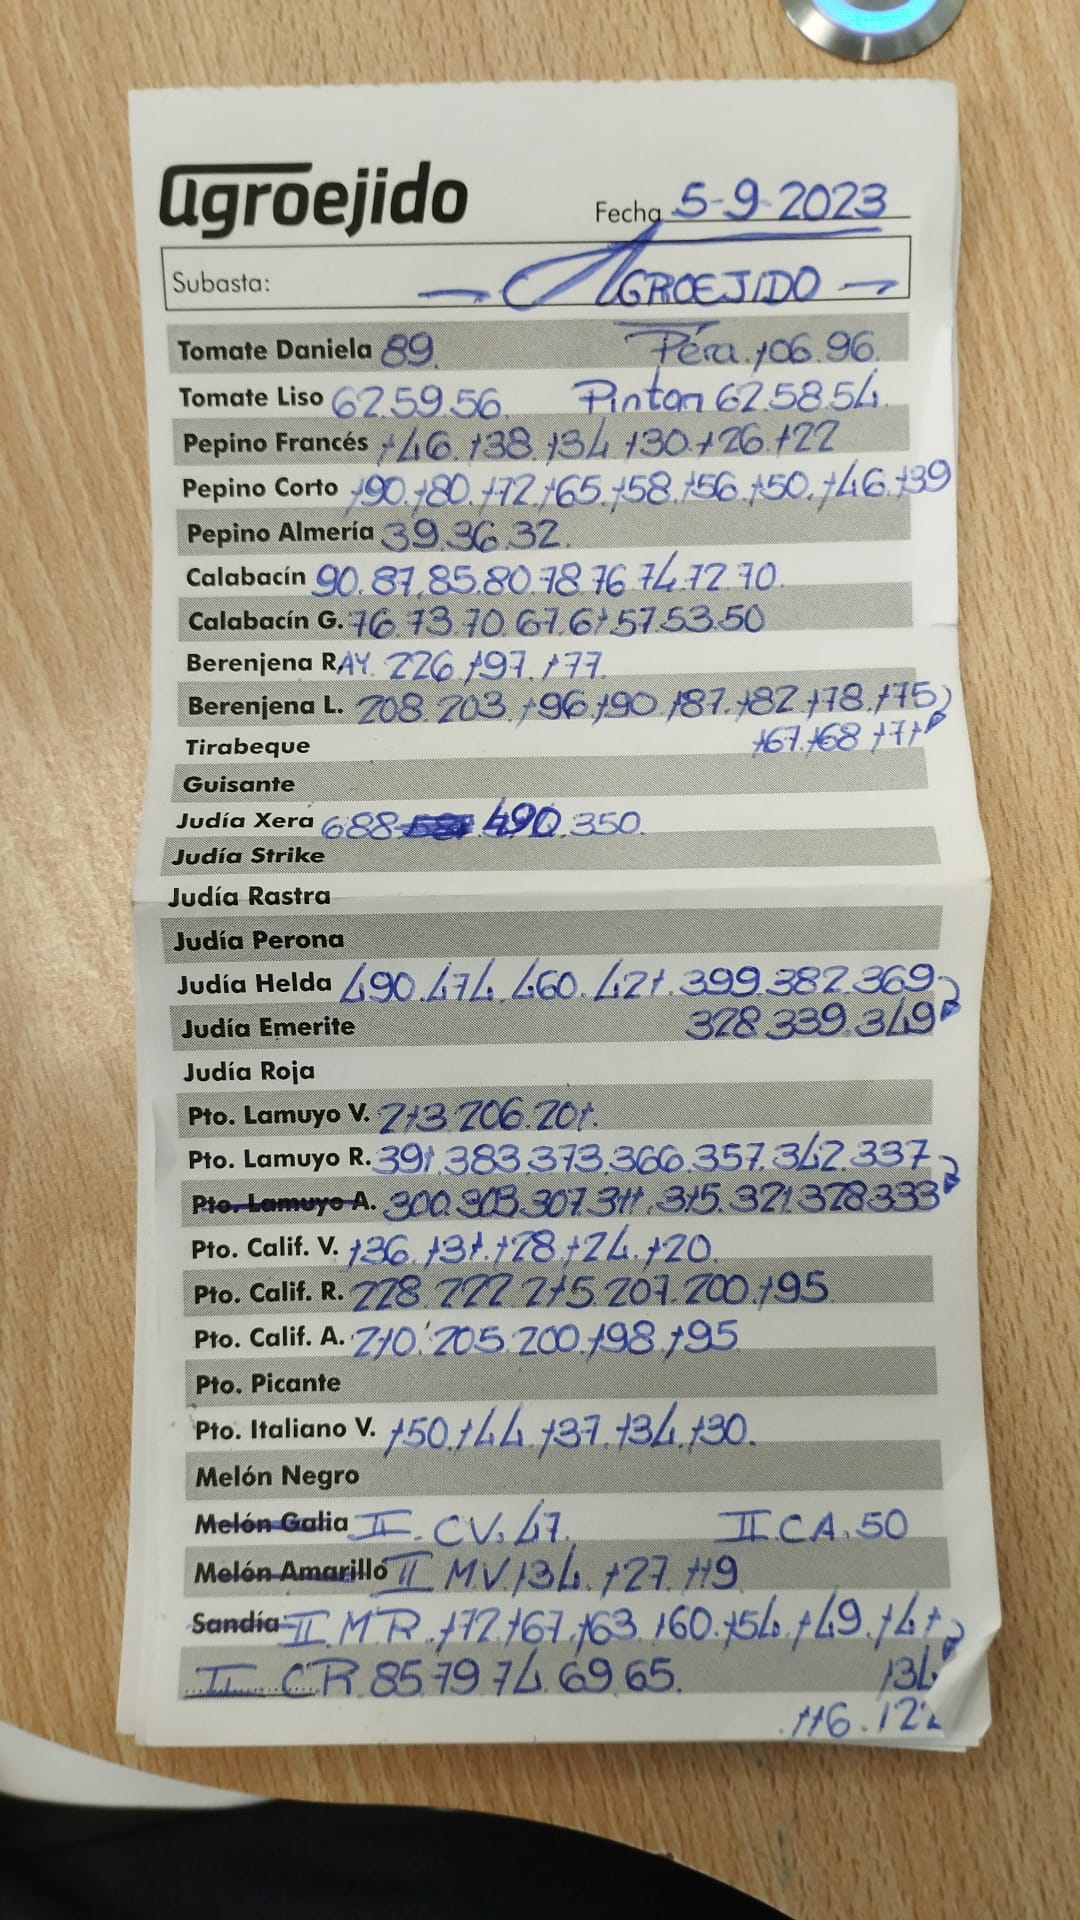 agroejido
Fecha 5-9-2023
Subasta: — AGROEJIDO —
Tomate Daniela 89. Pera.106.96.
Tomate Liso 62.59.56. Pinton 62.58.54.
Pepino Francés 146.138.134.130.126.122
Pepino Corto 190.180.172.165.158.156.150.146.139
Pepino Almería 39.36.32.
Calabacín 90.87.85.80.78.76.74.72.70.
Calabacín G. 76.73.70.67.61.57.53.50
Berenjena RAY. 226.197.177.
Berenjena L. 208.203.196.190.187.182.178.175
Tirabeque 167.168.171
Guisante
Judía Xera 688 490.350.
Judía Strike
Judía Rastra
Judía Perona
Judía Helda 490.474.460.421.399.382.369
Judía Emerite 328.339.349
Judía Roja
Pto. Lamuyo V. 213.206.201.
Pto. Lamuyo R. 391.383.373.366.357.342.337
Pto. Lamuyo A. 300.303.307.311.315.321.328.333
Pto. Calif. V. 136.131.128.124.120.
Pto. Calif. R. 228.222.215.207.200.195
Pto. Calif. A. 210.205.200.198.195
Pto. Picante
Pto. Italiano V. 150.144.137.134.130.
Melón Negro
Melón Galia II. CV. 47. II.CA.50
Melón Amarillo II M.V 134.127.119
Sandía II.M.R.172.167.163.160.154.149.141
II CR.85.79.74.69.65. 134
116.122